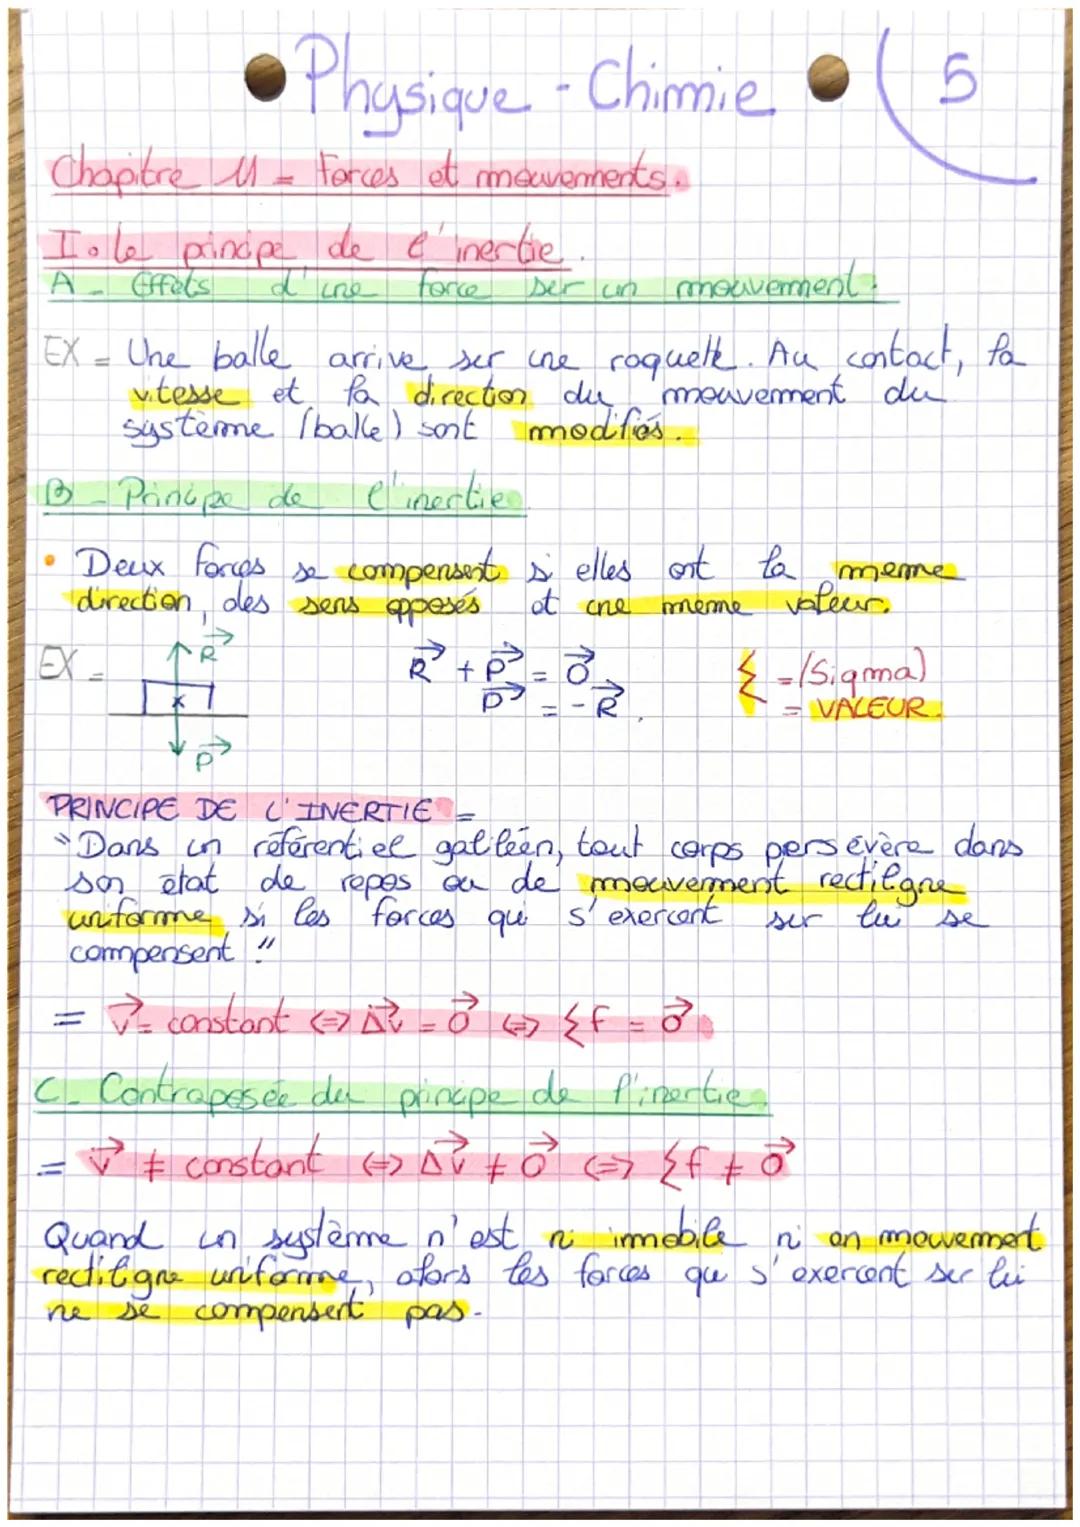 Physique - Chimie
5
Chapitre 11 = Forces et mouvements.
I. le principe de l'inertie.
A - Effets d'une force sur un mouvement.
EX = Une balle arrive sur une raquette. Au contact, la
vitesse et la direction du mouvement du
système (balle) sont modifiés.
B - Principe de l'inertie.
• Deux forces se compensent si elles ont la meme
direction, des sens opposés et une meme valeur.
EX =
R⃗
x
P⃗
R⃗ + P⃗ = 0⃗
P⃗ = - R⃗.
Σ = (Sigma)
= VALEUR.
PRINCIPE DE L'INERTIE =
"Dans un référentiel galiléen, tout corps persévère dans
son état de repos ou de mouvement rectiligne
uniforme si les forces qui s'exercent sur lui se
compensent."
= v⃗ = constant <=> Δv⃗ = 0⃗ <=> Σf = 0⃗
C - Contraposée du principe de l'inertie.
= v⃗ ≠ constant <=> Δv⃗ ≠ 0⃗ <=> Σf ≠ 0⃗
Quand un système n'est ni immobile ni en mouvement
rectiligne uniforme, alors les forces qui s'exercent sur lui
ne se compensent pas.